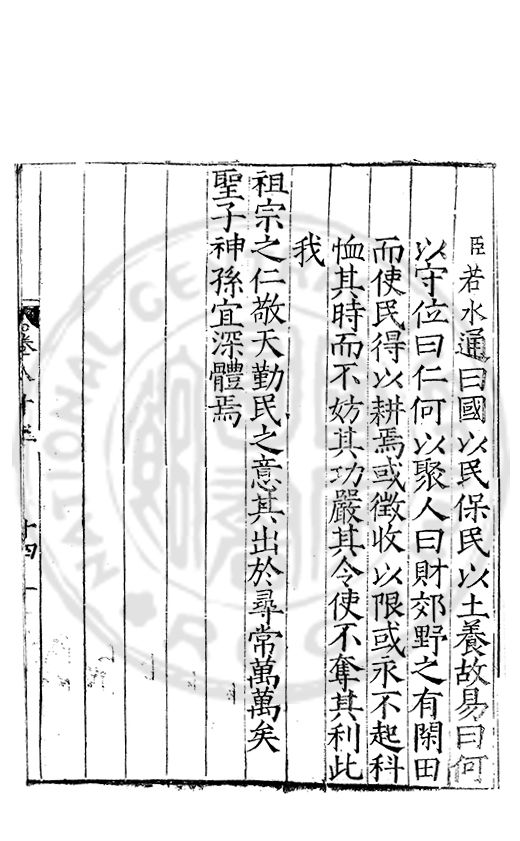 臣若水通曰國以民保民以土養故易曰何
以守位曰仁何以聚人曰財郊野之有閑田
而使民得以耕焉或徵收以限或永不起科
恤其時而不妨其功嚴其令使不奪其利此
我
祖宗之仁敬天勤民之意其出於尋常萬萬矣
聖子神孫宜深體焉
卷八十三
十四